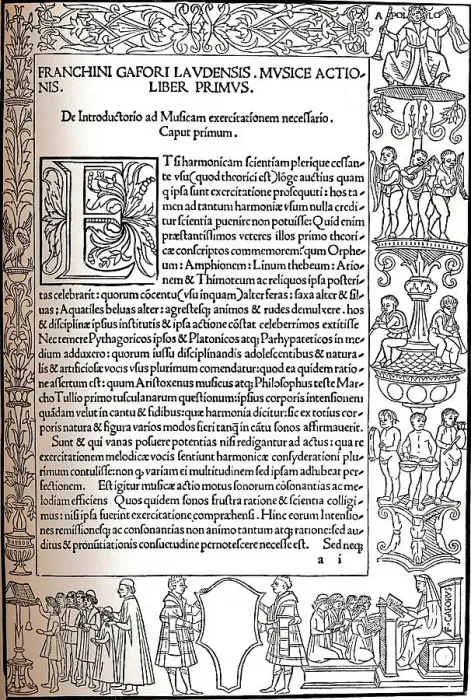 APOLLO
FRANCHINI GAFORI LAVDENSIS. MVSICE ACTIO-
NIS. LIBER PRIMVS.
De Introductorio ad Muſicam exercitationem neceſſario.
Caput primum.
ETſi harmonicam ſcientiam plerique ceſſan-
te vſu(quod theorici eſt)lõge auctius quam
q ipſa ſunt exercitatione proſequuti: hos ta-
men ad tantum harmoniæ vſum nulla credi-
tur ſcientia pueníre non potuiſſe: Quid enim
præſtantiſſimos veteres illos primo theori-
cæ conſcriptos commemorem: quam Orphe-
um: Amphionem: Linum thebeum: Ario-
nem & Thimoteum ac reliquos ipſa poſteri
tas celebrarit: quorum cõcentu(vſu inquam)alter feras: ſaxa alter & ſil-
uas; Aquatiles beluas alter: agreſteſq; animos & rudes demulxere. hos
& diſciplinæ ipſius inſtitutis & ipſa actione cõſtat celeberrimos extitiſſe
Nec temere Pythagoricos ipſos & Platonicos atq; Parhypateticos in me
dium adduxero: quorum iuſſu diſciplinandis adoleſcentibus & natura-
lis & artificioſæ vocis vſus plurimum comendatur: quod ea quidem ratio-
ne aſſertum eſt: quum Ariſtoxenus muſicus atq; Philoſophus teſte Mar-
cho Tullio primo tuſculanarum queſtionum: ipſius corporis intenſionem
quãdam velut in cantu & fidibus: quæ harmonia dicitur: ſic ex totius cor-
poris natura & figura varios modos fieri tanq̃ in cãtu ſonos affirmauerit.
Sunt & qui vanas poſuere potentias niſi redigantur ad actus: qua re
exercitationem melodicæ vocis ſentiunt harmonicæ conſyderationi plu-
rimum contuliſſe: non q variam ei multitudinem ſed ipſam adhibeat per-
fectionem. Eſt igitur muſicæ actio motus ſonorum cõſonantias ac me-
lodiam efficiens Quos quidem ſonos fruſtra ratione & ſcientia colligi-
mus: niſi ipſa fuerint exercitatione compræhenſi. Hinc eorum Intenſio-
nes remiſſioneſq; ac conſonantias non animo tantum atq; ratione: ſed au-
ditus & pronũtiationis conſuetudine pernoteſcere neceſſe eſt. Sed neq;
a i
F. GAFORVS